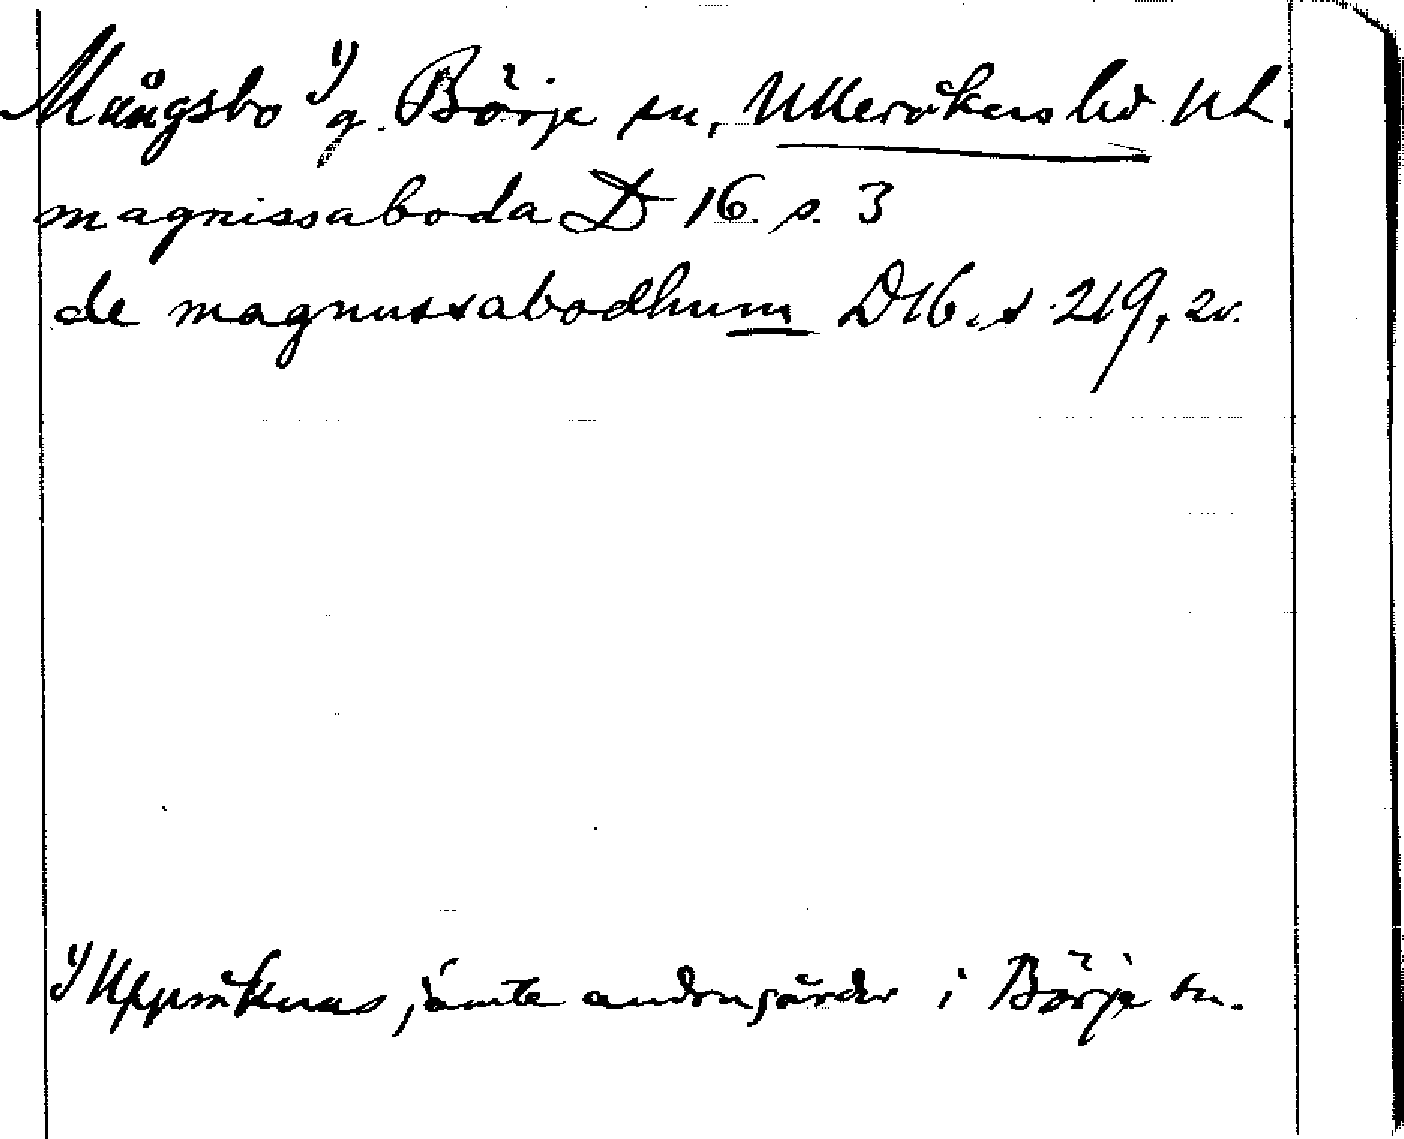 Mångsbo 1) g. Börje sn, Ulleråkers hd Ul.
magnissaboda D 16 s. 3
de magnussabodhum D16. s 219, 2v.
1) Uppräknas jämte andra gårdar i Börje sn.